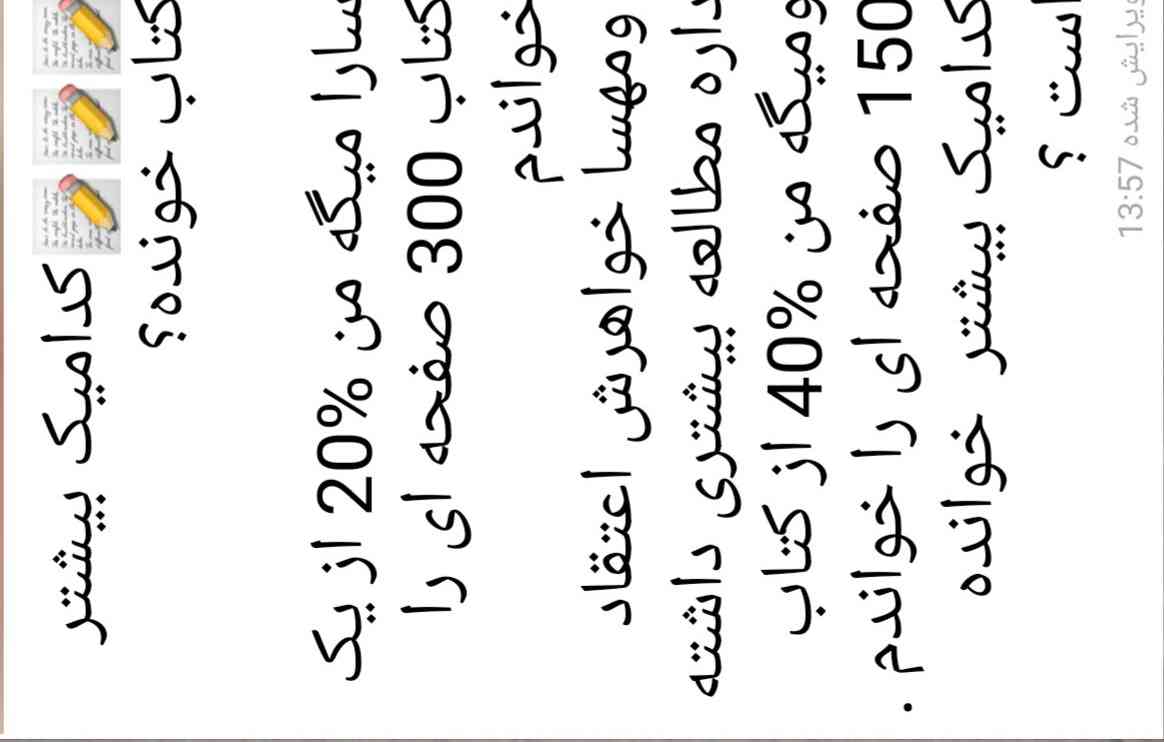 کدامیک بیشتر
کتاب خونده؟
سارا میگه من 20% از یک
کتاب 300 صفحه ای را
خواندم
ومهسا خواهرش اعتقاد
داره مطالعه بیشتری داشته
ومیگه من 40% از کتاب
150 صفحه ای را خواندم .
کدامیک بیشتر خوانده
است ؟
ویرایش شده 13:57